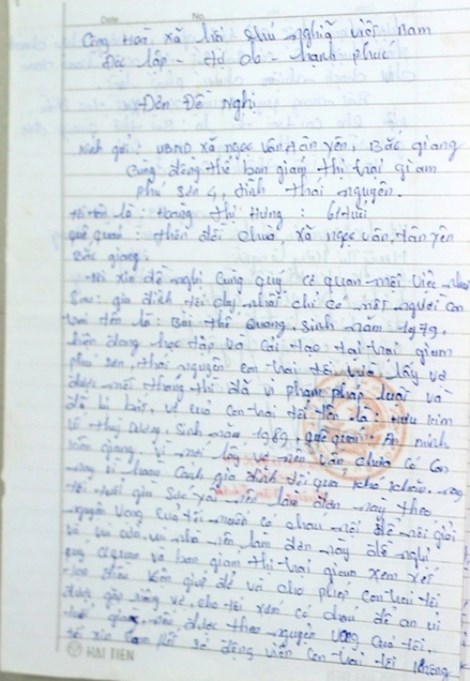 Date No.
Cộng Hoà xã hội chủ nghĩa việt nam
Độc lập - tự do - hạnh phúc
Đơn Đề Nghị
kính gửi: UBND xã ngọc vân tân yên, Bắc giang
Cùng đồng thể ban giám thị trại giam
phú sơn 4, tỉnh thái nguyên.
tôi tên là: Hoàng thị Hưng: 61 tuổi
quê quán: thôn đồi chùa, xã ngọc vân, tân yên
Bắc giang.
tôi xin đề nghị cùng quý cơ quan một việc như
Sau: gia đình tôi duy nhất chỉ có một người con
trai tên là: Bùi thế Quang, sinh năm 1979,
hiện đang học tập và cải tạo tại trại giam
phú sơn, thái nguyên con trai tôi vừa lấy vợ
được một tháng thì đã vi phạm pháp luật và
đã bị bắt, vợ của con trai tôi tên là: kim
thuỳ Dương, sinh năm 1989, quê quán: An minh
kiên giang. vì mới lấy vợ nên vẫn chưa có con
nay vì hoàn cảnh gia đình tôi quá khó khăn, nay
tôi tuổi già sức yếu nên làm đơn này theo
nguyện vọng của tôi muốn có cháu nội để nối giỗi
nên làm đơn này đề nghị
quý cơ quan và ban giám thị trại giam xem xét
tạo điều kiện giúp đỡ và cho phép con trai tôi
được gặp riêng vợ, cho tôi xem có cháu để an ủi
tuổi già, nếu được theo nguyện vọng của tôi.
tôi xin cam kết sẽ động viên con trai tôi không
HẢI TIẾN